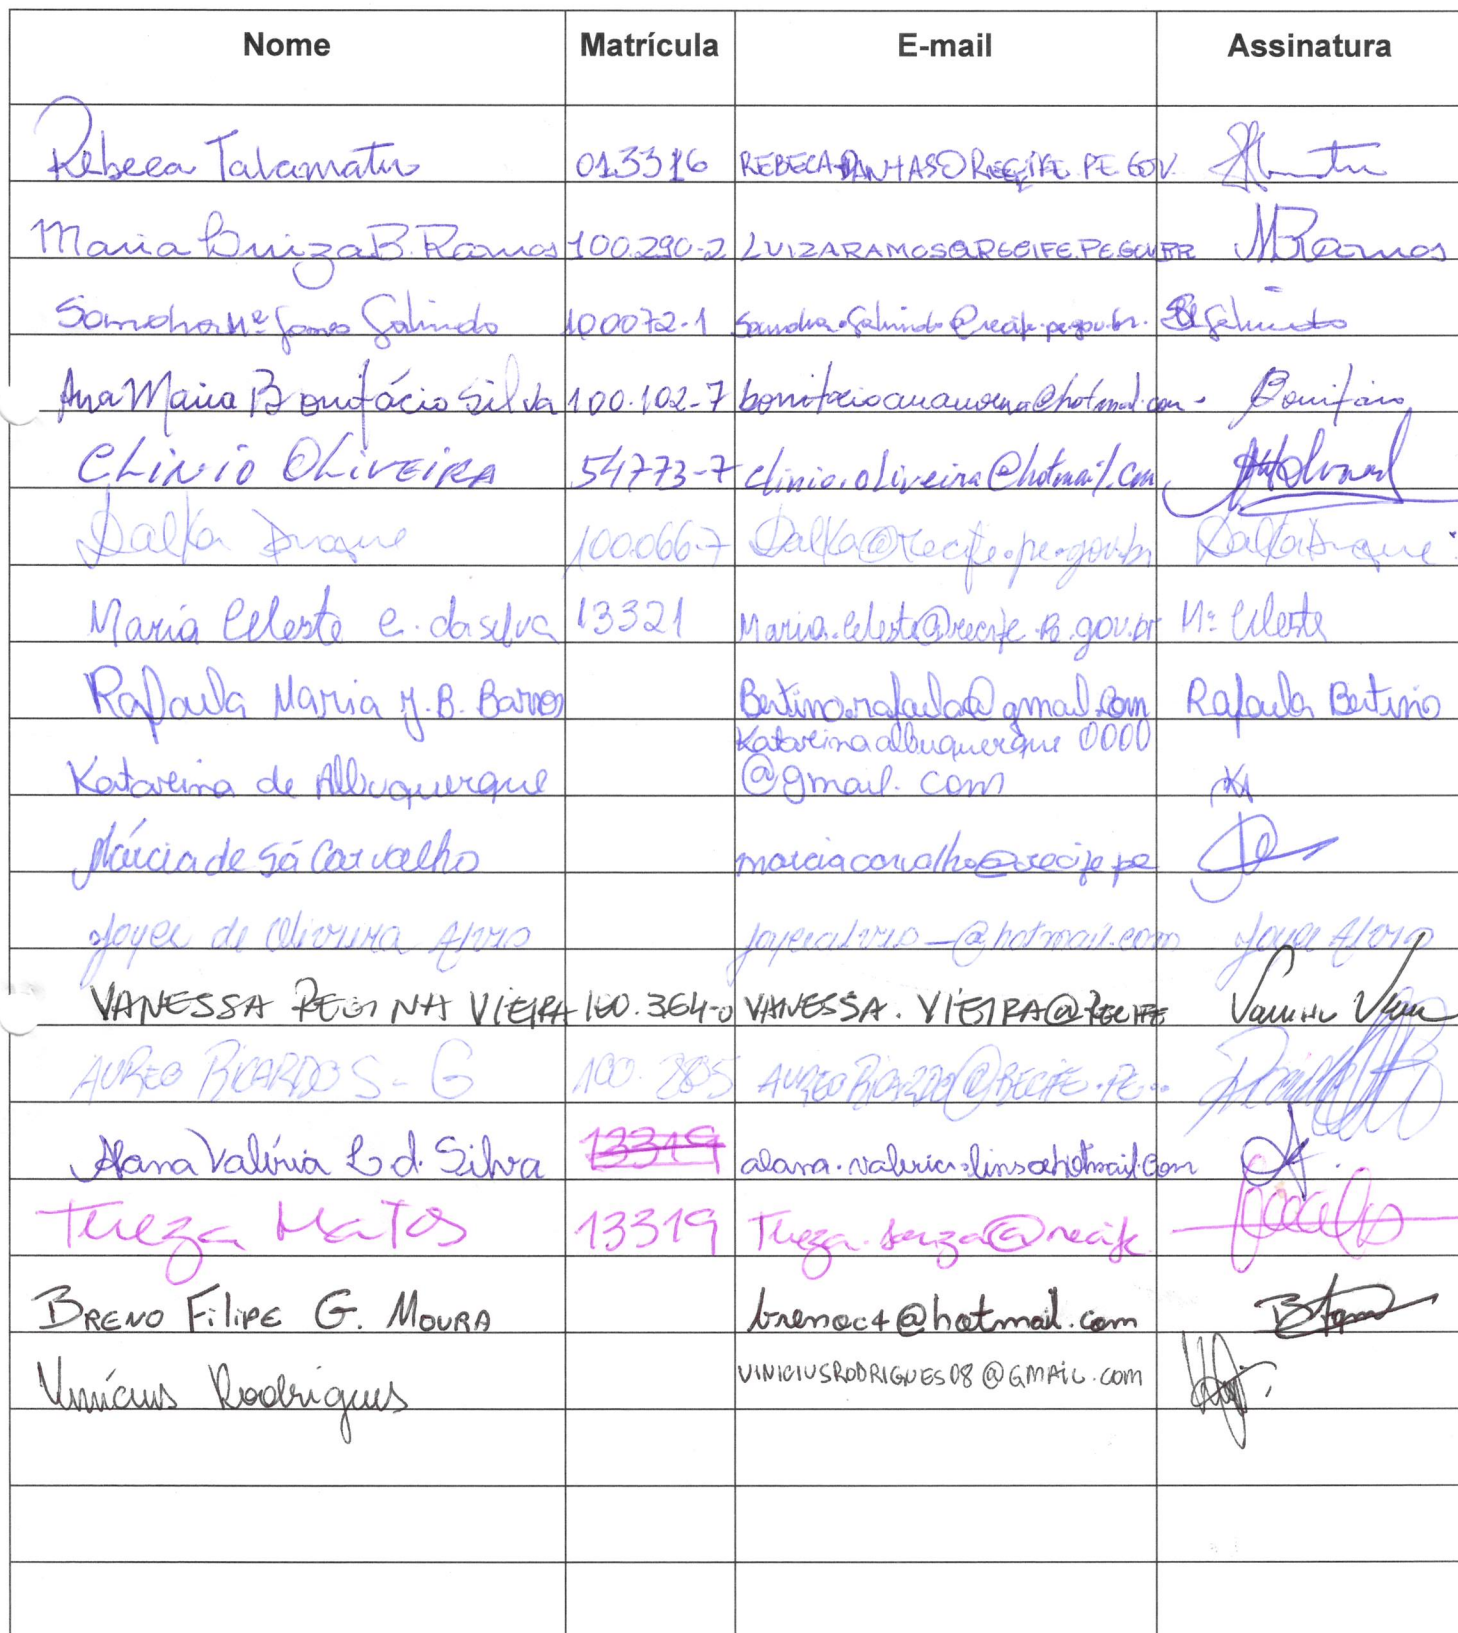 Nome Matrícula E-mail Assinatura
Rebeca Takamatu 013316 REBECA.DANTAS@RECIFE.PE.GOV.
Maria Luiza B. Ramos 100.290-2 LUIZARAMOS@RECIFE.PE.GOV.BR MRamos
Sandra Mª Gomes Galindo 100072-1 Sandra.Galindo@recife.pe.gov.br. Galindo
Ana Maria Bonifácio Silva 100.102-7 bonifacioanamaria@hotmail.com. Bonifácio
CLINIO OLIVEIRA 54773-7 clinio.oliveira@hotmail.com
Dalka Duque 100.066-7 Dalka@recife.pe.gov.br Dalka Duque
Maria Celeste C. da silva 13321 Maria.Celeste@recife.pe.gov.br Mª Celeste
Rafaela Maria J. B. Barros Bertino.rafaela@gmail.com Rafaela Bertino
Katareina albuquerque 0000
Katareina de Albuquerque @gmail.com KA
Márcia de Sá Carvalho marciacarvalho@recife.pe
Joyce de Oliveira Alves joycealves_@hotmail.com Joyce Alves
VANESSA REGINA VIEIRA 100.364-0 VANESSA.VIEIRA@RECIFE Vanessa Vieira
AUREO RICARDO S. G 100.285 AUREORICARDO@RECIFE.PE..
Alana Valéria L d. Silva 13319 alana.valeria.lins@hotmail.com
Tereza Matos 13319 Tereza.souza@recife
BRENO FiliPE G. MOURA brenoc4@hotmail.com
Vinícius Rodrigues VINICIUSRODRIGUES08@GMAIL.COM